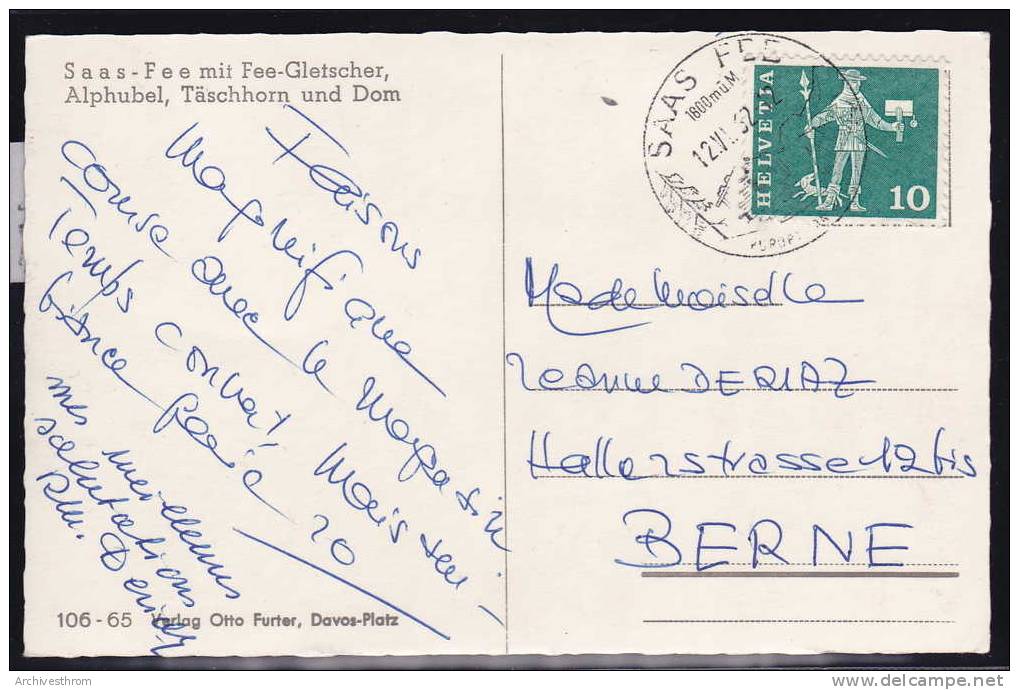 Saas-Fee mit Fee-Gletscher,
Alphubel, Täschhorn und Dom
Faisons
magnifique
course avec le magasin
Temps couvert, mais
mes meilleures
salutations
R.M. Deriaz
106-65 Verlag Otto Furter, Davos-Platz
SAAS FEE
1800 m ü M
HELVETIA
10
Mademoiselle
Jeanne DERIAZ
Hallerstrasse 12 bis
BERNE
Archivesthrom
www.delcampe.net